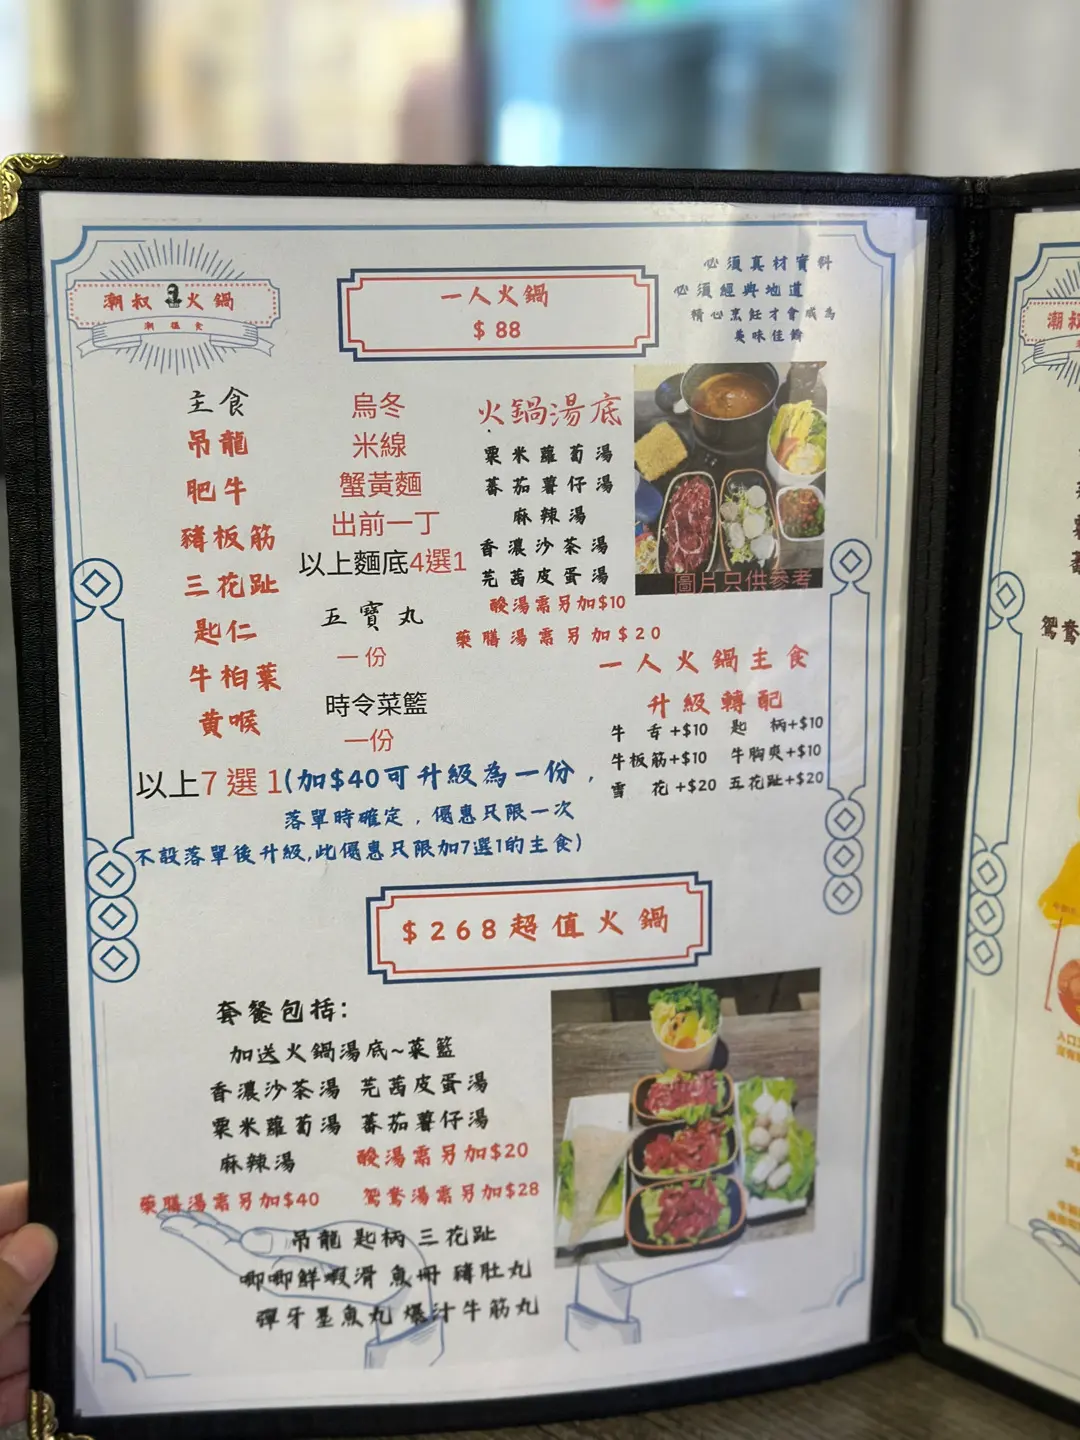 潮叔火鍋
潮語食
必須真材實料
必須經典地道
精心烹飪才會成為
美味佳餚
一人火鍋
$88
主食
吊龍
肥牛
豬板筋
三花趾
匙仁
牛柏葉
黃喉
烏冬
米線
蟹黃麵
出前一丁
以上麵底4選1
五寶丸
一份
時令菜籃
一份
火鍋湯底
粟米蘿蔔湯
蕃茄薯仔湯
麻辣湯
香濃沙茶湯
芫茜皮蛋湯
酸湯需另加$10
藥膳湯需另加$20
圖片只供參考
一人火鍋主食
升級轉配
牛舌+$10 匙柄+$10
牛板筋+$10 牛胸爽+$10
雪花+$20 五花趾+$20
以上7選1(加$40可升級為一份,
落單時確定,優惠只限一次
不設落單後升級,此優惠只限加7選1的主食)
$268超值火鍋
套餐包括:
加送火鍋湯底~菜籃
香濃沙茶湯 芫茜皮蛋湯
粟米蘿蔔湯 蕃茄薯仔湯
麻辣湯 酸湯需另加$20
藥膳湯需另加$40 鴛鴦湯需另加$28
吊龍 匙柄 三花趾
唧唧鮮蝦滑 魚冊 豬肚丸
彈牙墨魚丸 爆汁牛筋丸